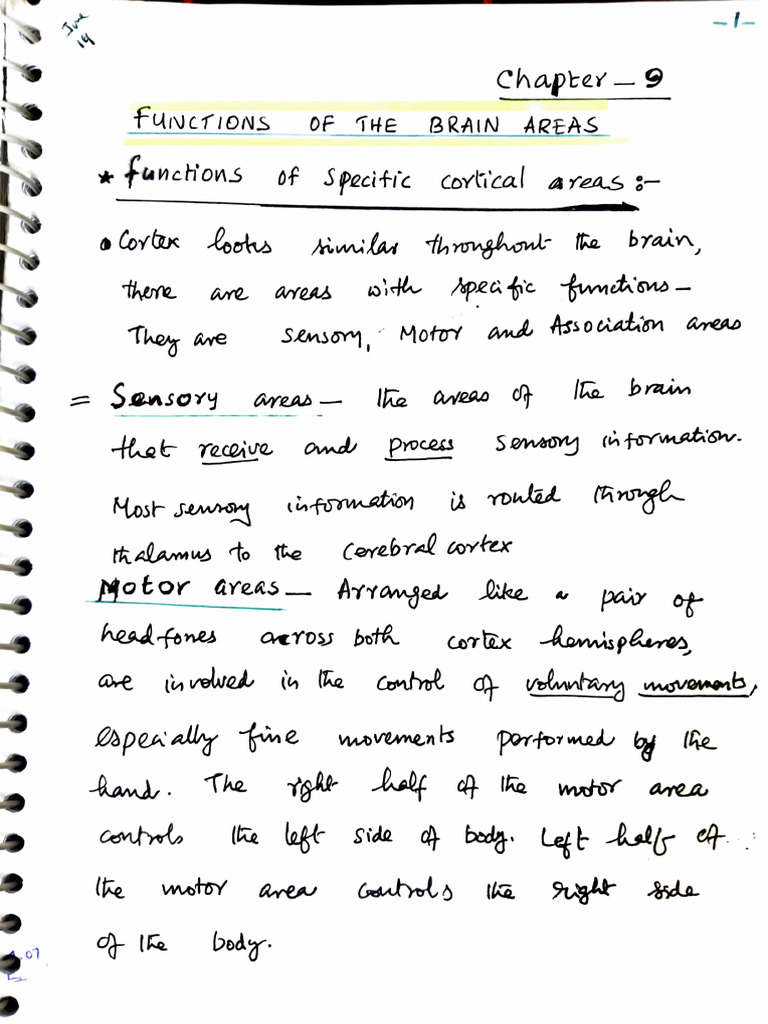 June
14
-1-
Chapter - 9
FUNCTIONS OF THE BRAIN AREAS
* functions of specific cortical areas :-
• Cortex looks similar throughout the brain,
there are areas with specific functions -
They are sensory, Motor and Association areas
= Sensory areas - the areas of the brain
that receive and process sensory information.
Most sensory information is routed through
thalamus to the cerebral cortex
Motor areas - Arranged like a pair of
headfones across both cortex hemispheres,
are involved in the control of voluntary movements,
especially fine movements performed by the
hand. The right half of the motor area
controls the left side of body. Left half of
the motor area controls the right side
of the body.